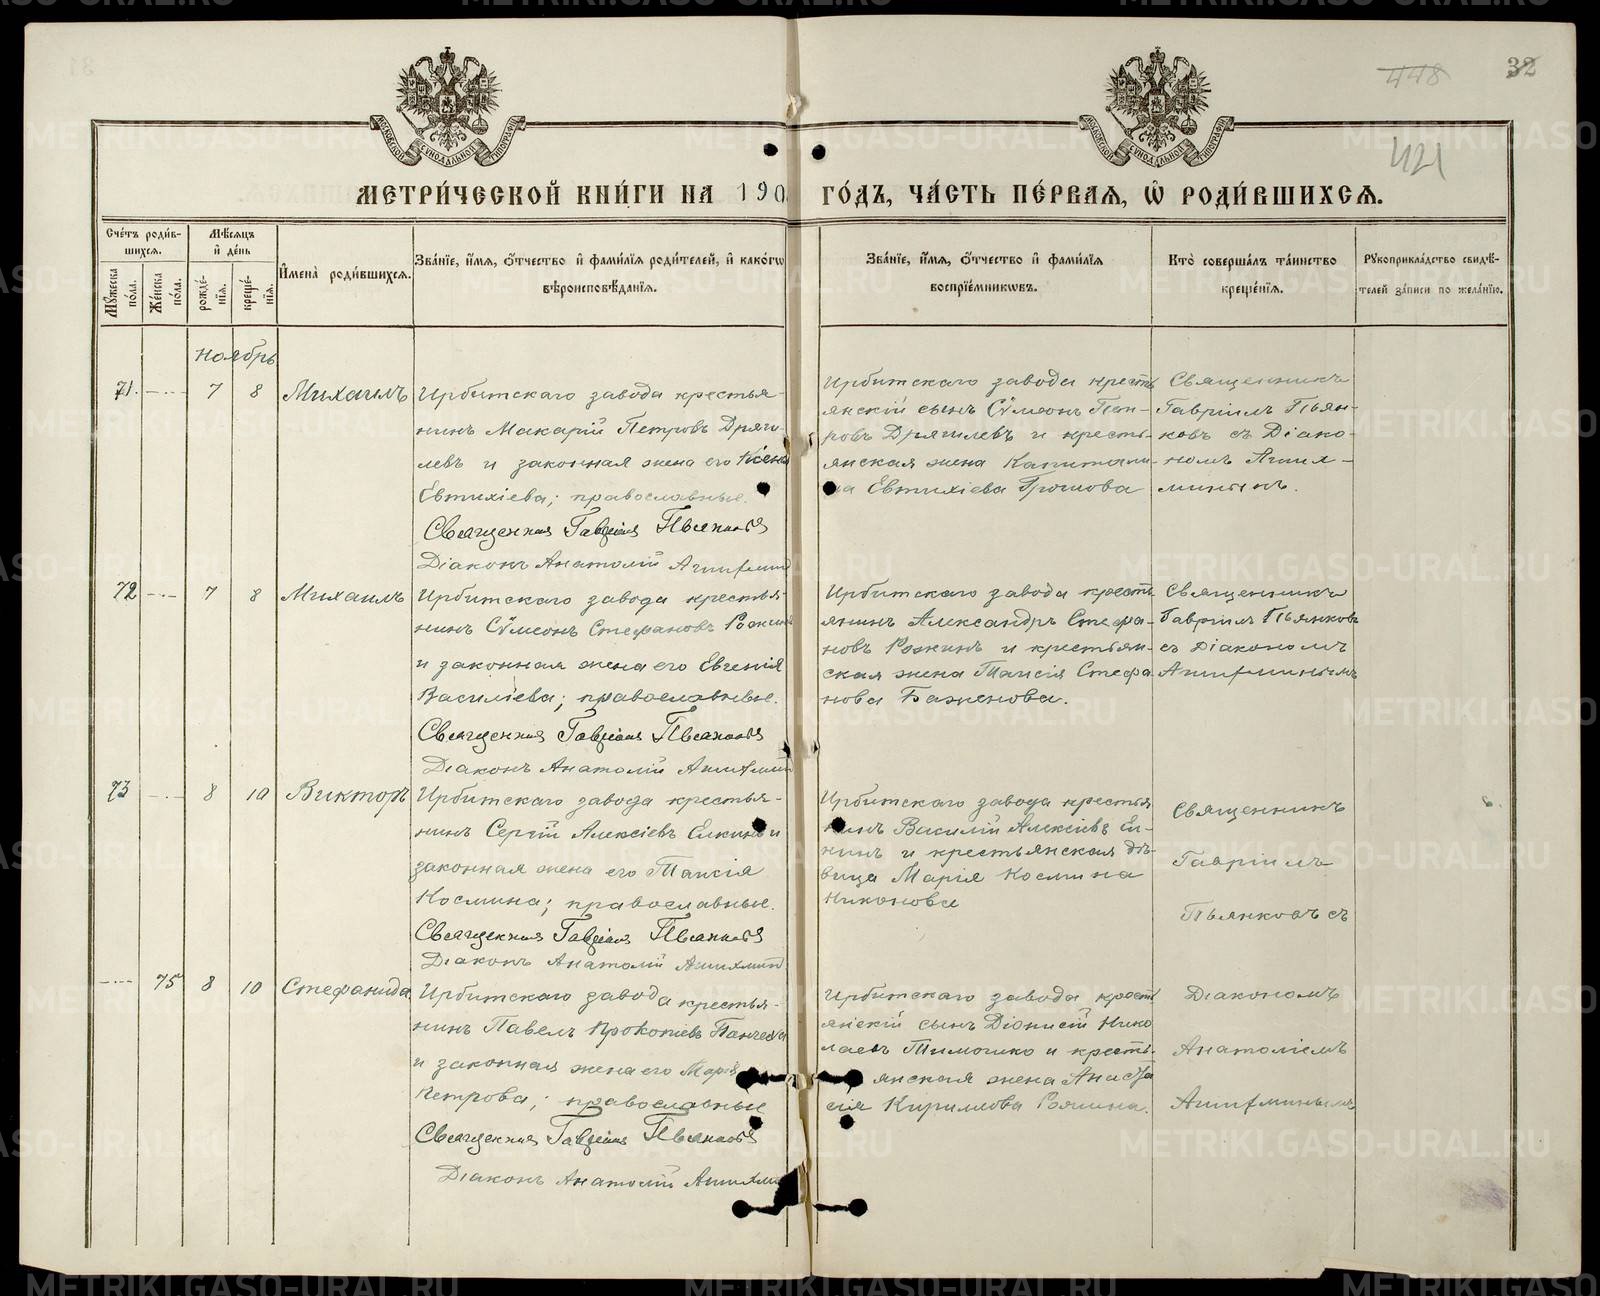 448
32
421
МЕТРИ́ЧЕСКОЙ КНИ́ГИ НА 190
ГО́ДЪ, ЧА́СТЬ ПЕ́РВАѦ, Ѡ҆ РОДИ́ВШИХСѦ.
Сче́тъ роди́в-
шихсѧ.
Мѣ́сѧцъ
и҆ де́нь
Мꙋ́жеска по́ла.
Же́нска по́ла.
рожде́-
нїѧ.
креще́-
нїѧ.
И҆мена̀ роди́вшихсѧ.
Зва́нїе, и҆́мѧ, ѻ҆́тчество и҆ фами́лїѧ роди́телей, и҆ како́гѡ
вѣроисповѣ́данїѧ.
Зва́нїе, и҆́мѧ, ѻ҆́тчество и҆ фами́лїѧ
воспрїе́мникѡвъ.
Кто̀ соверша́лъ та́инство
креще́нїѧ.
Рꙋкоприкла́дство свидѣ́-
телей за́писи по жела́нїю.
ноябрь
71. 7 8 Михаилъ
Ирбитскаго завода крестья-
нинъ Макарій Петровъ Дряги-
левъ и законная жена его Ксенія
Евтихіева; православные.
Священникъ Гавріилъ Пьянковъ
Діаконъ Анатолій
Ирбитскаго завода кресть
янскій сынъ Сѵмеонъ Пет-
ровъ Дрягилевъ и кресть-
янская жена Капитоли-
на Евтихіева Грошова
Священникъ
Гавріилъ Пьян-
ковъ съ Діако-
номъ
72 7 8 Михаилъ
Ирбитскаго завода крестья-
нинъ Сѵмеонъ Стефановъ Рожинъ
и законная жена его Евгенія
Василіева; православные.
Священникъ Гавріилъ Пьянковъ
Діаконъ Анатолій
Ирбитскаго завода кресть
янинъ Александръ Стефа-
новъ Рожинъ и крестьян-
ская жена Таисія Стефа
нова Баженова.
Священникъ
Гавріилъ Пьянковъ
съ Діакономъ
73 8 10 Викторъ
Ирбитскаго завода крестья-
нинъ Сергій Алексіевъ Елкинъ и
законная жена его Таисія
Космина; православные.
Священникъ Гавріилъ Пьянковъ
Діаконъ Анатолій
Ирбитскаго завода крестья
нинъ Василій Алексіевъ Ел-
кинъ и крестьянская дѣ-
вица Марія Космина
Никонова
Священникъ
Гавріилъ
Пьянковъ съ
75 8 10 Стефанида
Ирбитскаго завода крестья-
нинъ Павелъ Прокопіевъ
и законная жена его Марія
Петрова; православные
Священникъ Гавріилъ Пьянковъ
Діаконъ Анатолій
Ирбитскаго завода крест
янскій сынъ Діонисій Нико
лаевъ Тимошко и кресть-
янская жена Анаста
сія Кириллова
Діакономъ
Анатоліемъ
METRIKI.GASO-URAL.RU